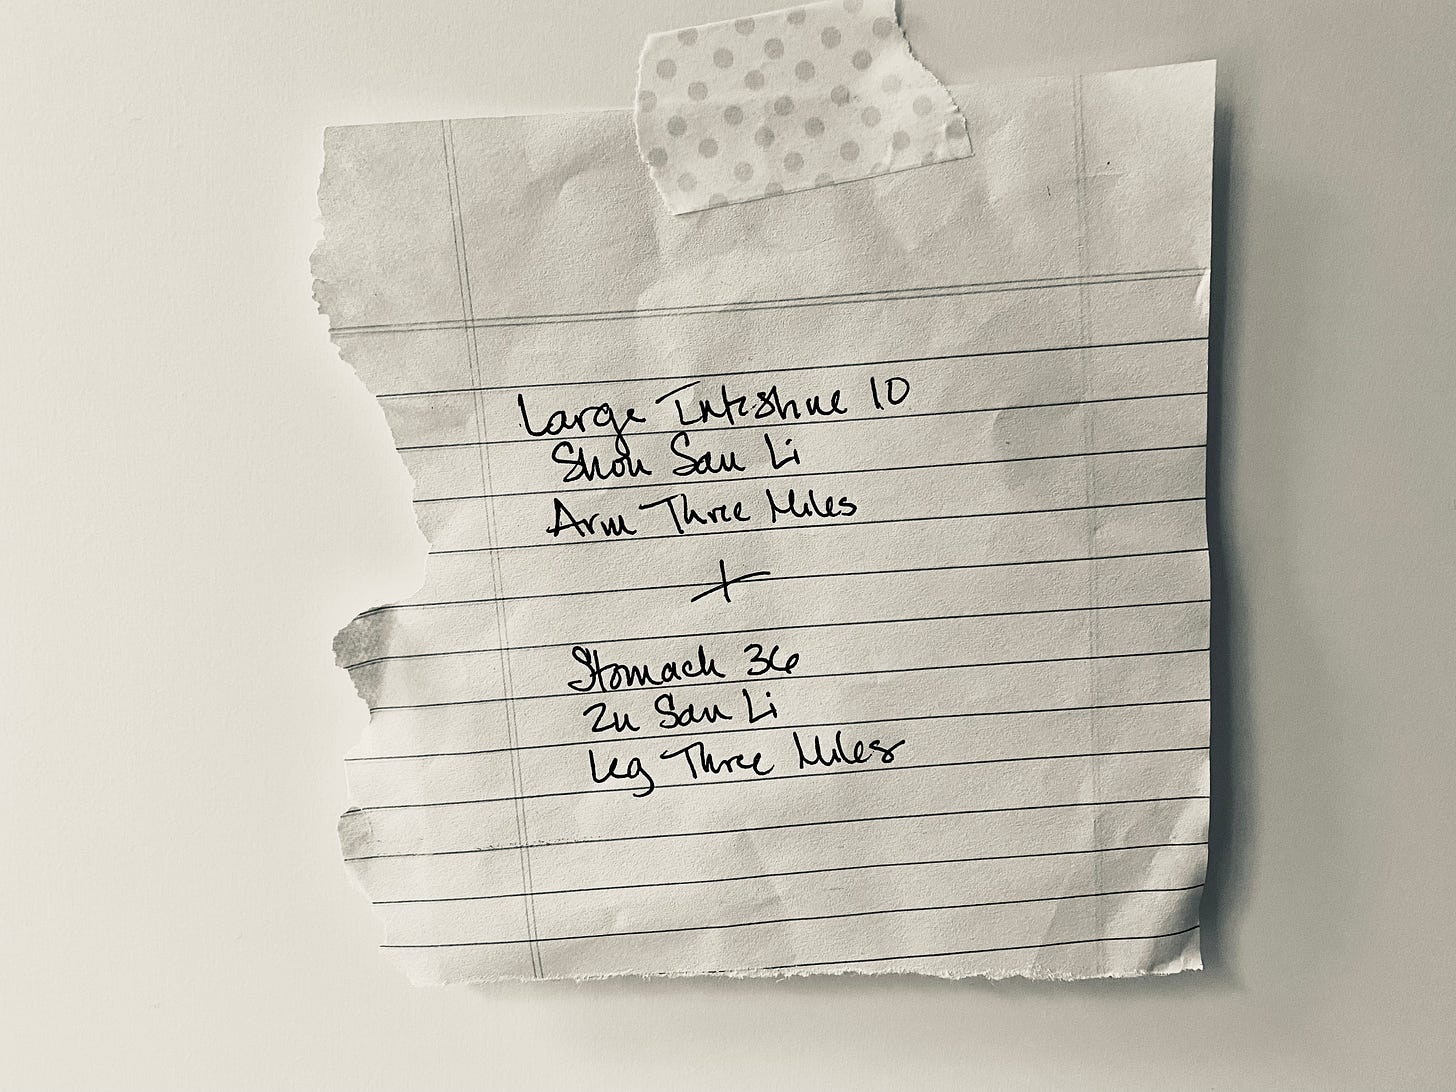 Large Intestine 10
Shou San Li
Arm Three Miles
+
Stomach 36
Zu San Li
Leg Three Miles